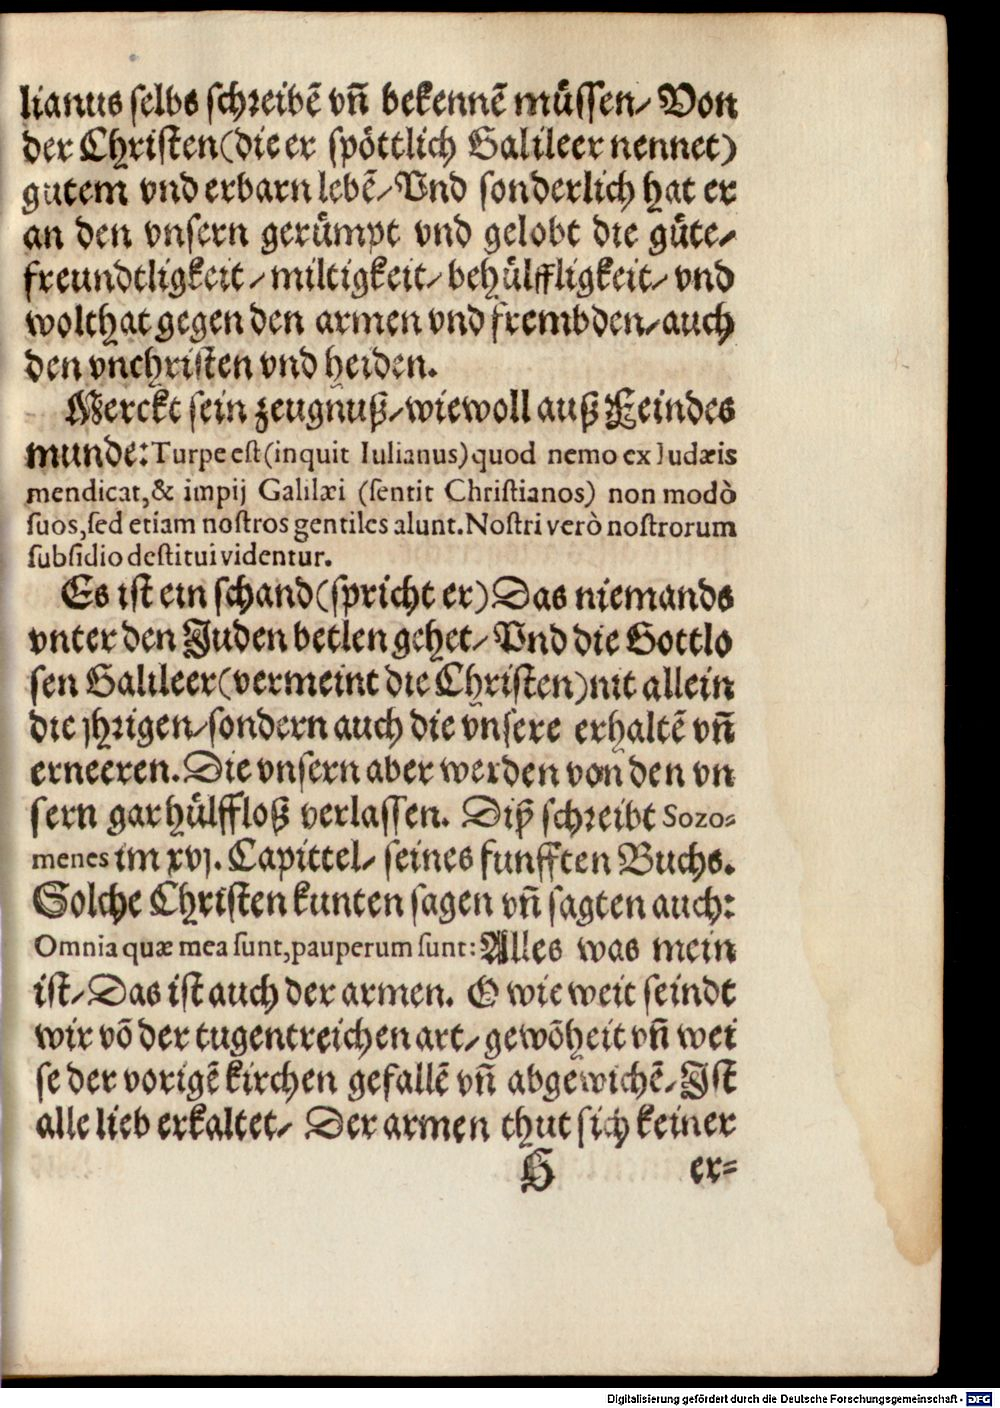 lianus selbs schreibẽ vñ bekennẽ müssen/ Von
der Christen (die er spöttlich Galileer nennet)
gutem vnd erbarn lebẽ/ Vnd sonderlich hat er
an den vnsern gerümpt vnd gelobt die güte/
freundtligkeit/ miltigkeit/ behülffligkeit/ vnd
wolthat gegen den armen vnd frembden/ auch
den vnchristen vnd heiden.
Merckt sein zeugnuß/ wiewoll auß Feindes
munde: Turpe est (inquit Iulianus) quod nemo ex Iudæis
mendicat, & impij Galilæi (sentit Christianos) non modò
suos, sed etiam nostros gentiles alunt. Nostri verò nostrorum
subsidio destitui videntur.
Es ist ein schand (spricht er) Das niemands
vnter den Juden betlen gehet/ Vnd die Gottlo
sen Galileer (vermeint die Christen) nit allein
die jhrigen/ sondern auch die vnsere erhaltẽ vñ
erneeren. Die vnsern aber werden von den vn
sern gar hülffloß verlassen. Diß schreibt Sozo-
menes im xvj. Capittel/ seines funfften Buchs.
Solche Christen kunten sagen vñ sagten auch:
Omnia quæ mea sunt, pauperum sunt: Alles was mein
ist/ Das ist auch der armen. O wie weit seindt
wir võ der tugentreichen art/ gewõheit vñ wei
se der vorigẽ kirchen gefallẽ vñ abgewichẽ/ Ist
alle lieb erkaltet/ Der armen thut sich keiner
H er-
Digitalisierung gefördert durch die Deutsche Forschungsgemeinschaft - DFG